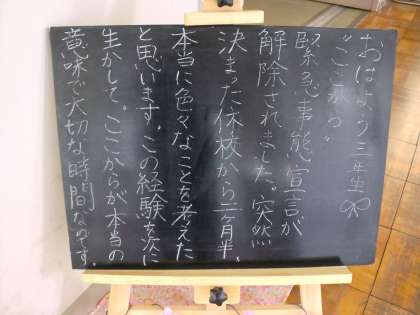 おはよう三年生
"ここから"
緊急事態宣言が
解除されました。突然
決まった休校から二ヶ月半、
本当に色々なことを考えた
と思います。この経験を次に
生かして。ここからが本当の
意味で大切な時間なのです。